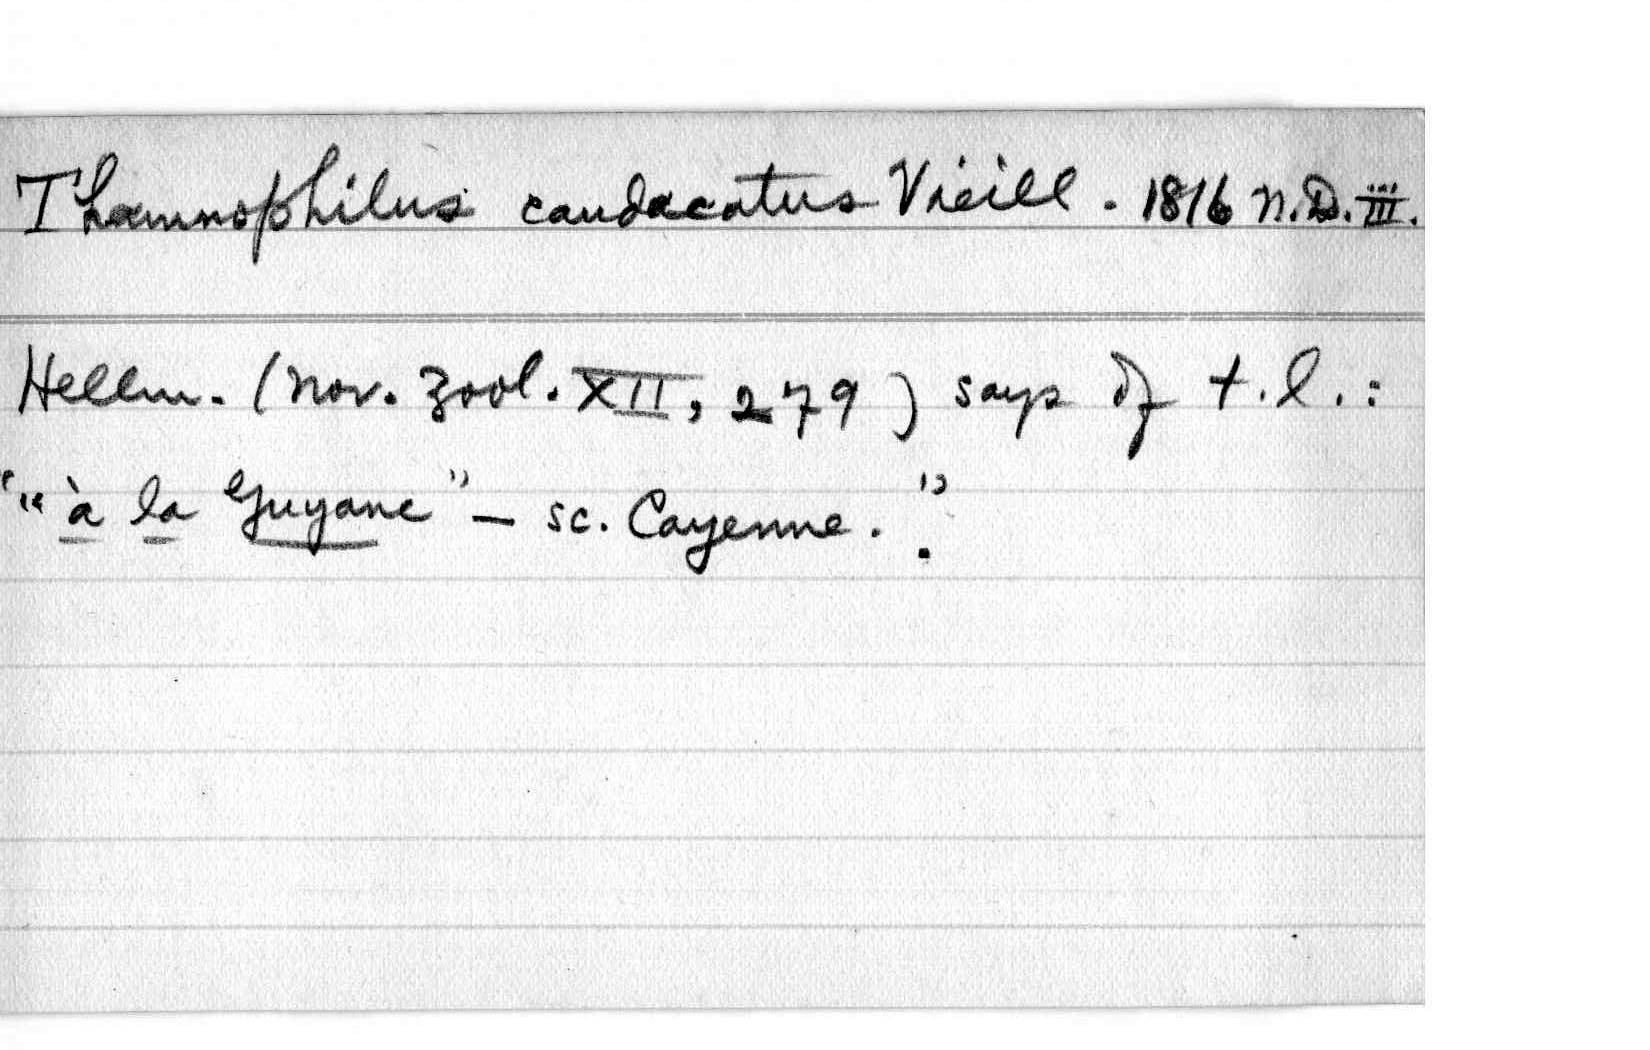 Thamnophilus caudacatus Vieill. 1816 N.D. III.
Hellm. (Nov. Zool. XII, 279) says of t.l.:
"“à la Guyane” — sc. Cayenne.".